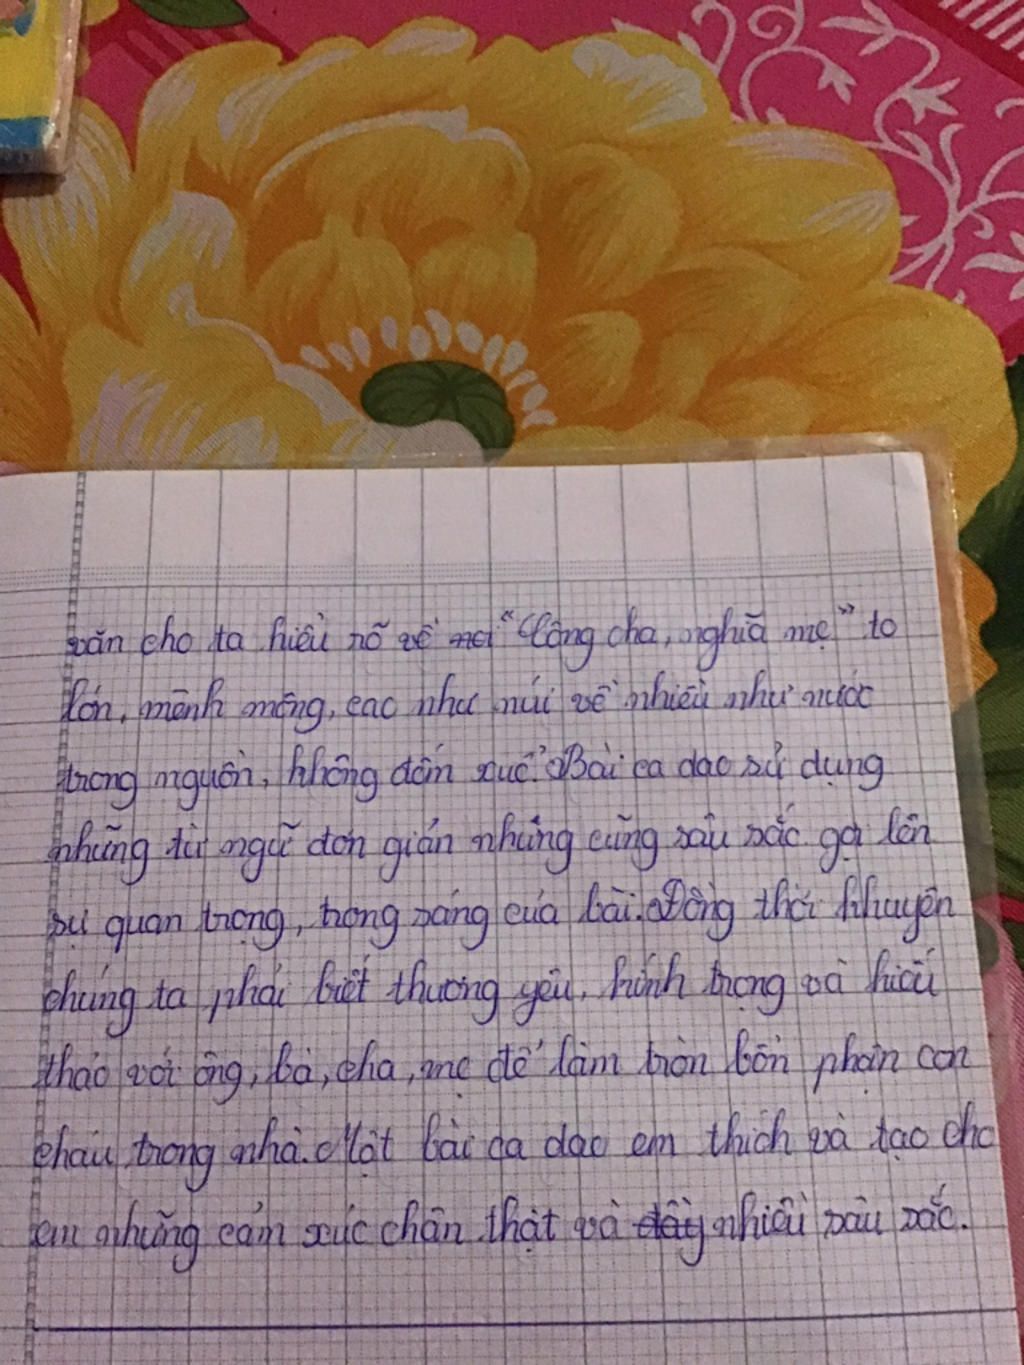 văn cho ta hiểu rõ về "Công cha, nghĩa mẹ" to
lớn, mênh mông, cao như núi về nhiều như nước
trong nguồn, không đếm xuể. Bài ca dao sử dụng
những từ ngữ đơn giản nhưng cũng sâu sắc gợi lên
sự quan trọng, trong sáng của bài. Đồng thời khuyên
chúng ta phải biết thương yêu, kính trọng và hiếu
thảo với ông, bà, cha, mẹ để làm tròn bổn phận con
cháu trong nhà. Một bài ca dao em thích và tạo cho
em những cảm xúc chân thật và đầy nhiều sâu sắc.